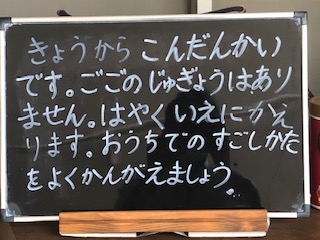 きょうから こんだんかい
です。ごごのじゅぎょうはあり
ません。はやく いえにかえ
ります。おうちでの すごしかた
をよくかんがえましょう。